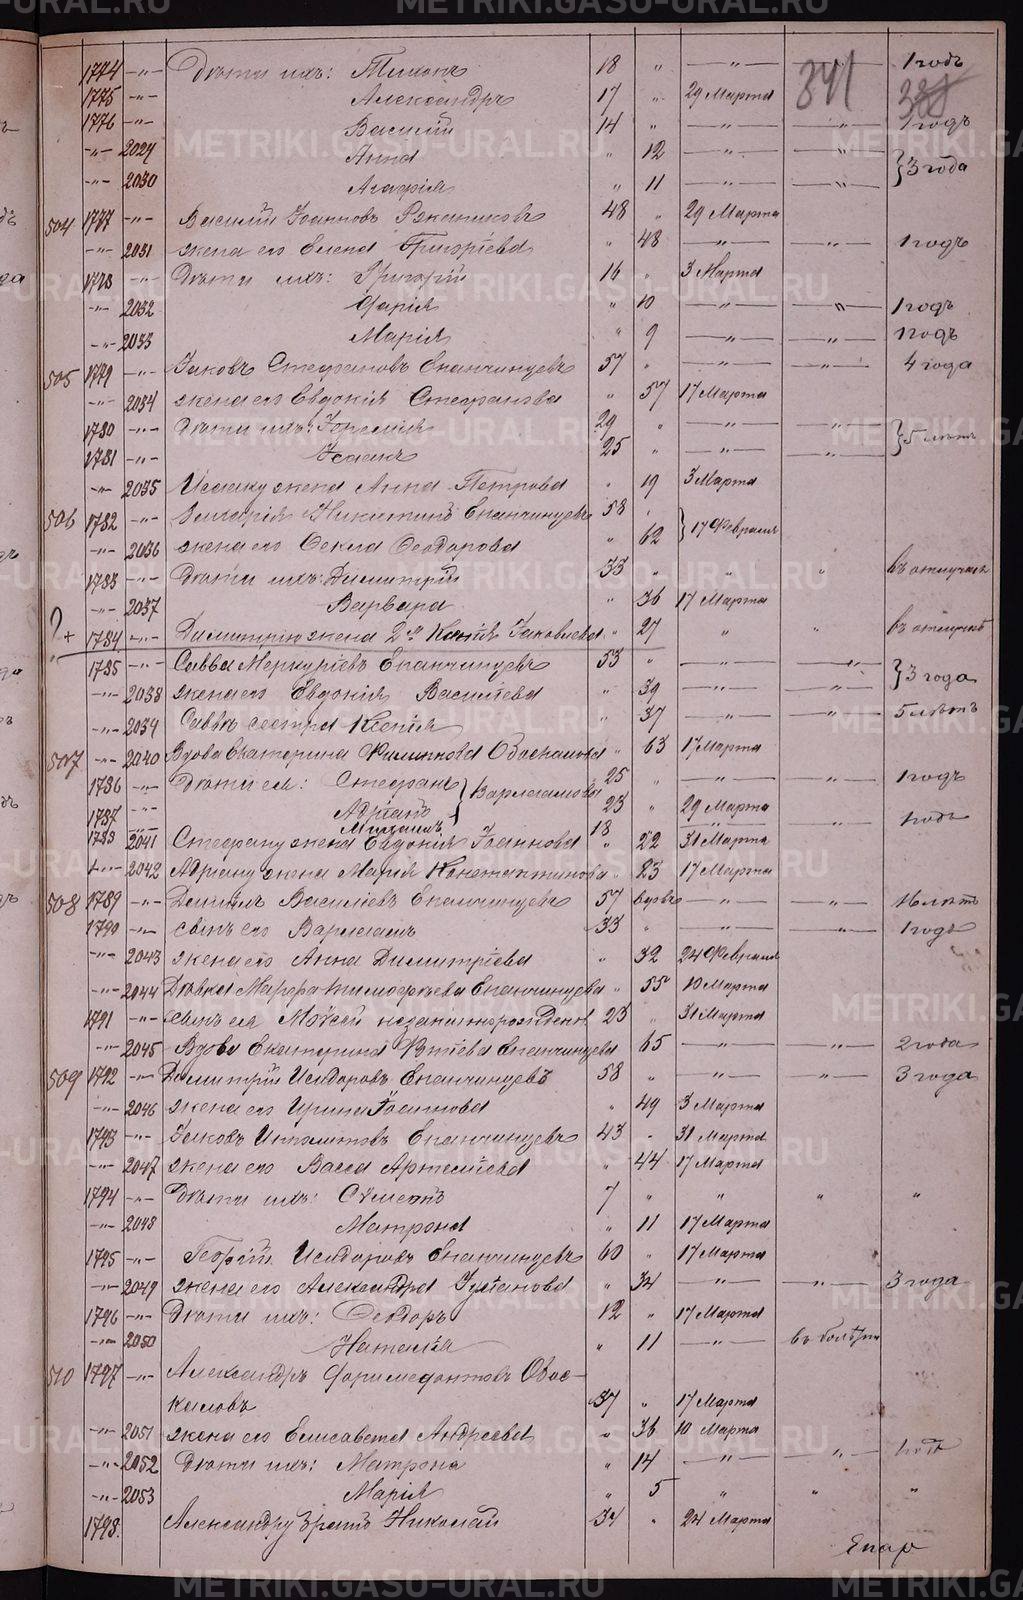 METRIKI.GASO-URAL.RU METRIKI.GASO-URAL.RU
1774 -"- Дѣти ихъ: Тихонъ 18 " -"- 341 1 годъ
1775 -"- Александръ 17 " 29 Марта
1776 -"- Василій 14 " -"- -"- 1 годъ
-"- 2029 Анна " 12 -"- -"- } 3 года
-"- 2030 Агафія " 11 -"- -"-
504 1777 -"- Василій Іоанновъ 48 " 29 Марта
-"- 2031 жена его Елена Григоріева " 48 -"- -"- 1 годъ
1778 -"- Дѣти ихъ: Григорій 16 " 3 Марта
-"- 2032 Дарія " 10 -"- -"- 1 годъ
-"- 2033 Марія " 9 -"- -"- 1 годъ
505 1779 -"- Іаковъ Стефановъ Епанчинцевъ 57 " -"- -"- 4 года
-"- 2034 жена его Евдокія Стефанова " 57 17 Марта
1780 -"- Дѣти ихъ: Іеремія 29 " -"- -"- } 5 лѣтъ
1781 -"- Исаакъ 25 " -"- -"-
-"- 2035 Исааку жена Анна Петрова " 19 3 Марта
506 1782 -"- Никитинъ Епанчинцевъ 58 " } 17 Февраля
-"- 2036 жена его Фекла Феодорова " 62
1783 -"- Дѣти ихъ: Димитрій 33 " " " въ отлучкѣ
-"- 2037 Варвара " 36 17 Марта
?+ 1784 -"- Димитрію жена 2я Ксенія Іаковлева " 27 " " въ отлучкѣ
1785 -"- Савва Меркуріевъ Епанчинцевъ 53 " -"- -"- } 3 года
-"- 2038 жена его Евдокія Василіева " 39 -"- -"-
-"- 2039 Саввѣ сестра Ксенія " 37 -"- -"- 5 лѣтъ
507 -"- 2040 Вдова Екатерина Филиппова " 63 17 Марта
1786 -"- Дѣти ея: Стефанъ } Варлаамовы 25 " -"- -"- 1 годъ
1787 -"- Адріанъ 23 " 29 Марта
1788 -"- Михаилъ 18 " -"- -"- 1 годъ
2041 Стефану жена Евдокія Іоаннова " 22 31 Марта
-"- 2042 Адріану жена Марія Константинова " 23 17 Марта
508 1789 -"- Даніилъ Василіевъ Епанчинцевъ 57 вдовъ -"- -"- 16 лѣтъ
1790 -"- сынъ его Варлаамъ 33 " -"- -"- 1 годъ
-"- 2043 жена его Анна Димитріева " 32 24 Февраля
-"- 2044 Дѣвка Марфа Тимофѣева Епанчинцева " 55 10 Марта
1791 -"- сынъ ея Моѵсей незаконнорожденн. 23 " 31 Марта
-"- 2045 Вдова Екатерина Епанчинцева " 65 -"- -"- 2 года
509 1792 -"- Димитрій Исидоровъ Епанчинцевъ 58 " -"- -"- 3 года
-"- 2046 жена его Ирина Іоаннова " 49 3 Марта
1793 -"- Іаковъ Ипполитовъ Епанчинцевъ 43 " 31 Марта
-"- 2047 жена его Васса Артеміева " 44 17 Марта
1794 -"- Дѣти ихъ: Сѵмеонъ 7 " " " "
-"- 2048 Матрона " 11 17 Марта
1795 -"- Георгій Исидоровъ Епанчинцевъ 60 " 17 Марта
-"- 2049 жена его Александра Іуліанова " 34 -"- -"- 3 года
1796 -"- Дѣти ихъ: Феодоръ 12 " 17 Марта
-"- 2050 Наталія " 11 -"-
510 1797 -"- Александръ Фармафонтовъ Овос-
каловъ 37 " 17 Марта
-"- 2051 жена его Елисавета Андреева " 36 10 Марта
-"- 2052 Дѣти ихъ: Матрона " 14 -"- -"- 1 годъ
-"- 2053 Марія " 5 " " "
1798. Александру братъ Николай 34 " 24 Марта
METRIKI.GASO-URAL.RU METRIKI.GASO-URAL.RU